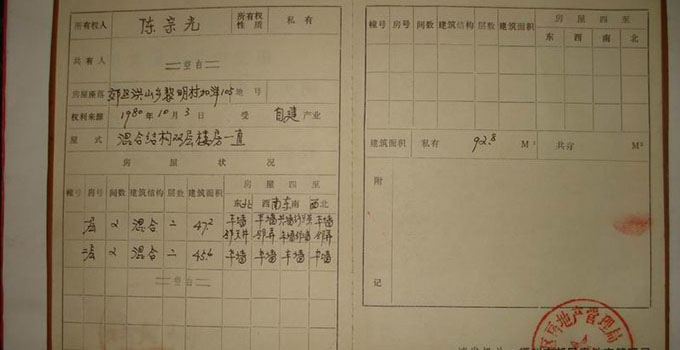 所有权人 陈宗光 所有权性质 私有
共有人 ==空白==
房屋座落 郊区洪山乡黎明村加洋105 地号
权利来源 1980年10月3日 受 自建 产业
屋式 混合结构双层楼房一直
房屋状况
幢号 房号 间数 建筑结构 层数 建筑面积 房屋四至
东北 西南 东南 西北
2 混合 二 47.2 半墙 半墙 半墙
二层 2 混合 二 45.6 半墙 半墙 半墙 半墙
==空白==
幢号 房号 间数 建筑结构 层数 建筑面积 房屋四至
东 西 南 北
建筑面积 私有 92.8 M² 共有 M²
附
记
区房地产管理局